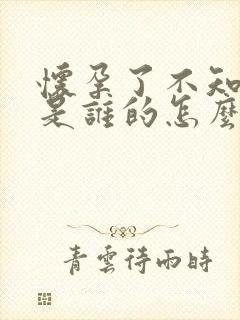 懷孕了不知
是誰的怎麼
青雲待雨時